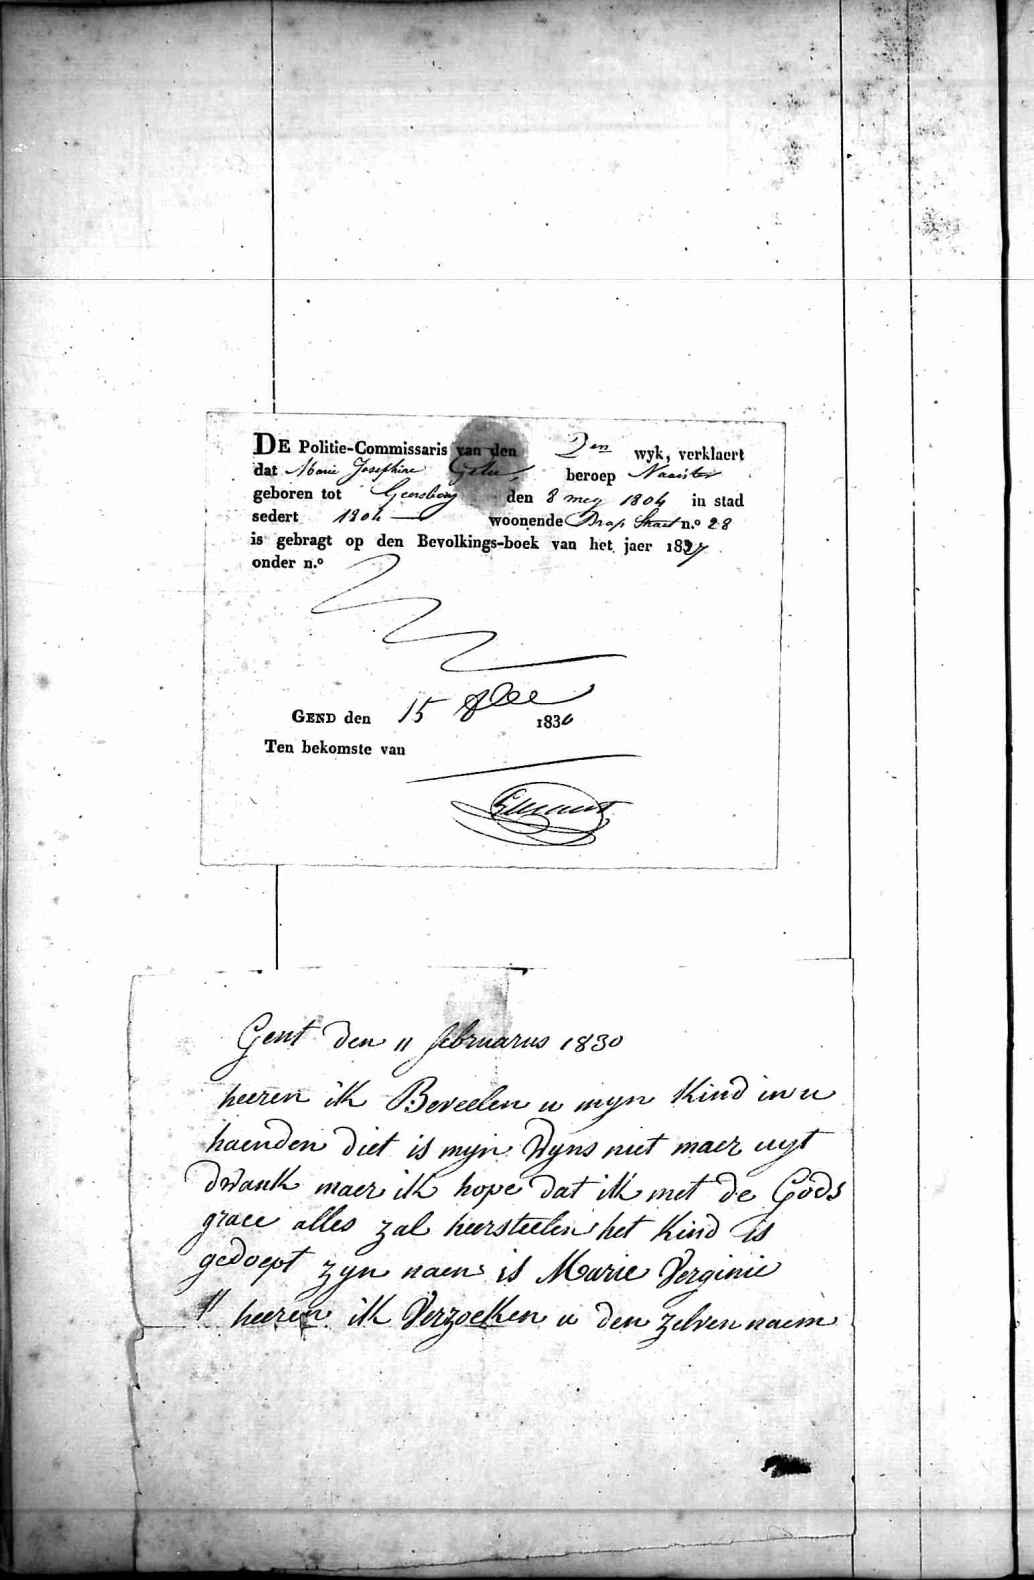 DE Politie-Commissaris van den 2en wyk, verklaert
dat Marie Josephine beroep Naaister
geboren tot den 8 mey 1804 in stad
sedert 1804 woonende Straet n.º 28
is gebragt op den Bevolkings-boek van het jaer 1827
onder n.º
GEND den 15 1830
Ten bekomste van
Gent den 11 februarus 1830
heeren ik Beveelen u myn Kind in u
haenden diet is myn Wyns niet maer uyt
dwank maer ik hope dat ik met de Gods
grace alles zal heersteelen het Kind is
gedoept zyn naem is Marie Verginie
heeren ik Verzoeken u den zelven naem